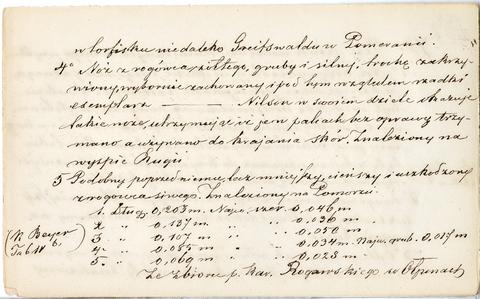 w torfisku niedaleko Greifswaldu w Pomeranii.
4° Nóż z rogówca żółtego, gruby i silny, trochę zakrzy-
wiony, wybornie zachowany i pod tym względem rzadki
exemplarz ——— Nilson w swoiém dziele okazuje
takie noże, utrzymując że jem palcach bez oprawy trzy-
mano a używano do krajania skór. Znaleziony na
wyspie Rugii
5 Podobny poprzedniemu, lecz mniejszy, cieńszy i uszkodzony
z rogowca siwego. Znaleziony na Pomorzu.
1. Dług. 0,203 m. Najw. szer. 0,046 m.
2 „ 0,137 m. „ „ 0,030 m
3 „ 0,107 m „ „ 0,050 m
4 „ 0,085 m „ „ 0,034 m. Najw. grub. 0,017 m
5. „ 0,069 m „ „ 0,023 m
(N Beyer
Tab. IV 6.)
Ze zbioru p. Kar. Rogawskiego w Ołpinach